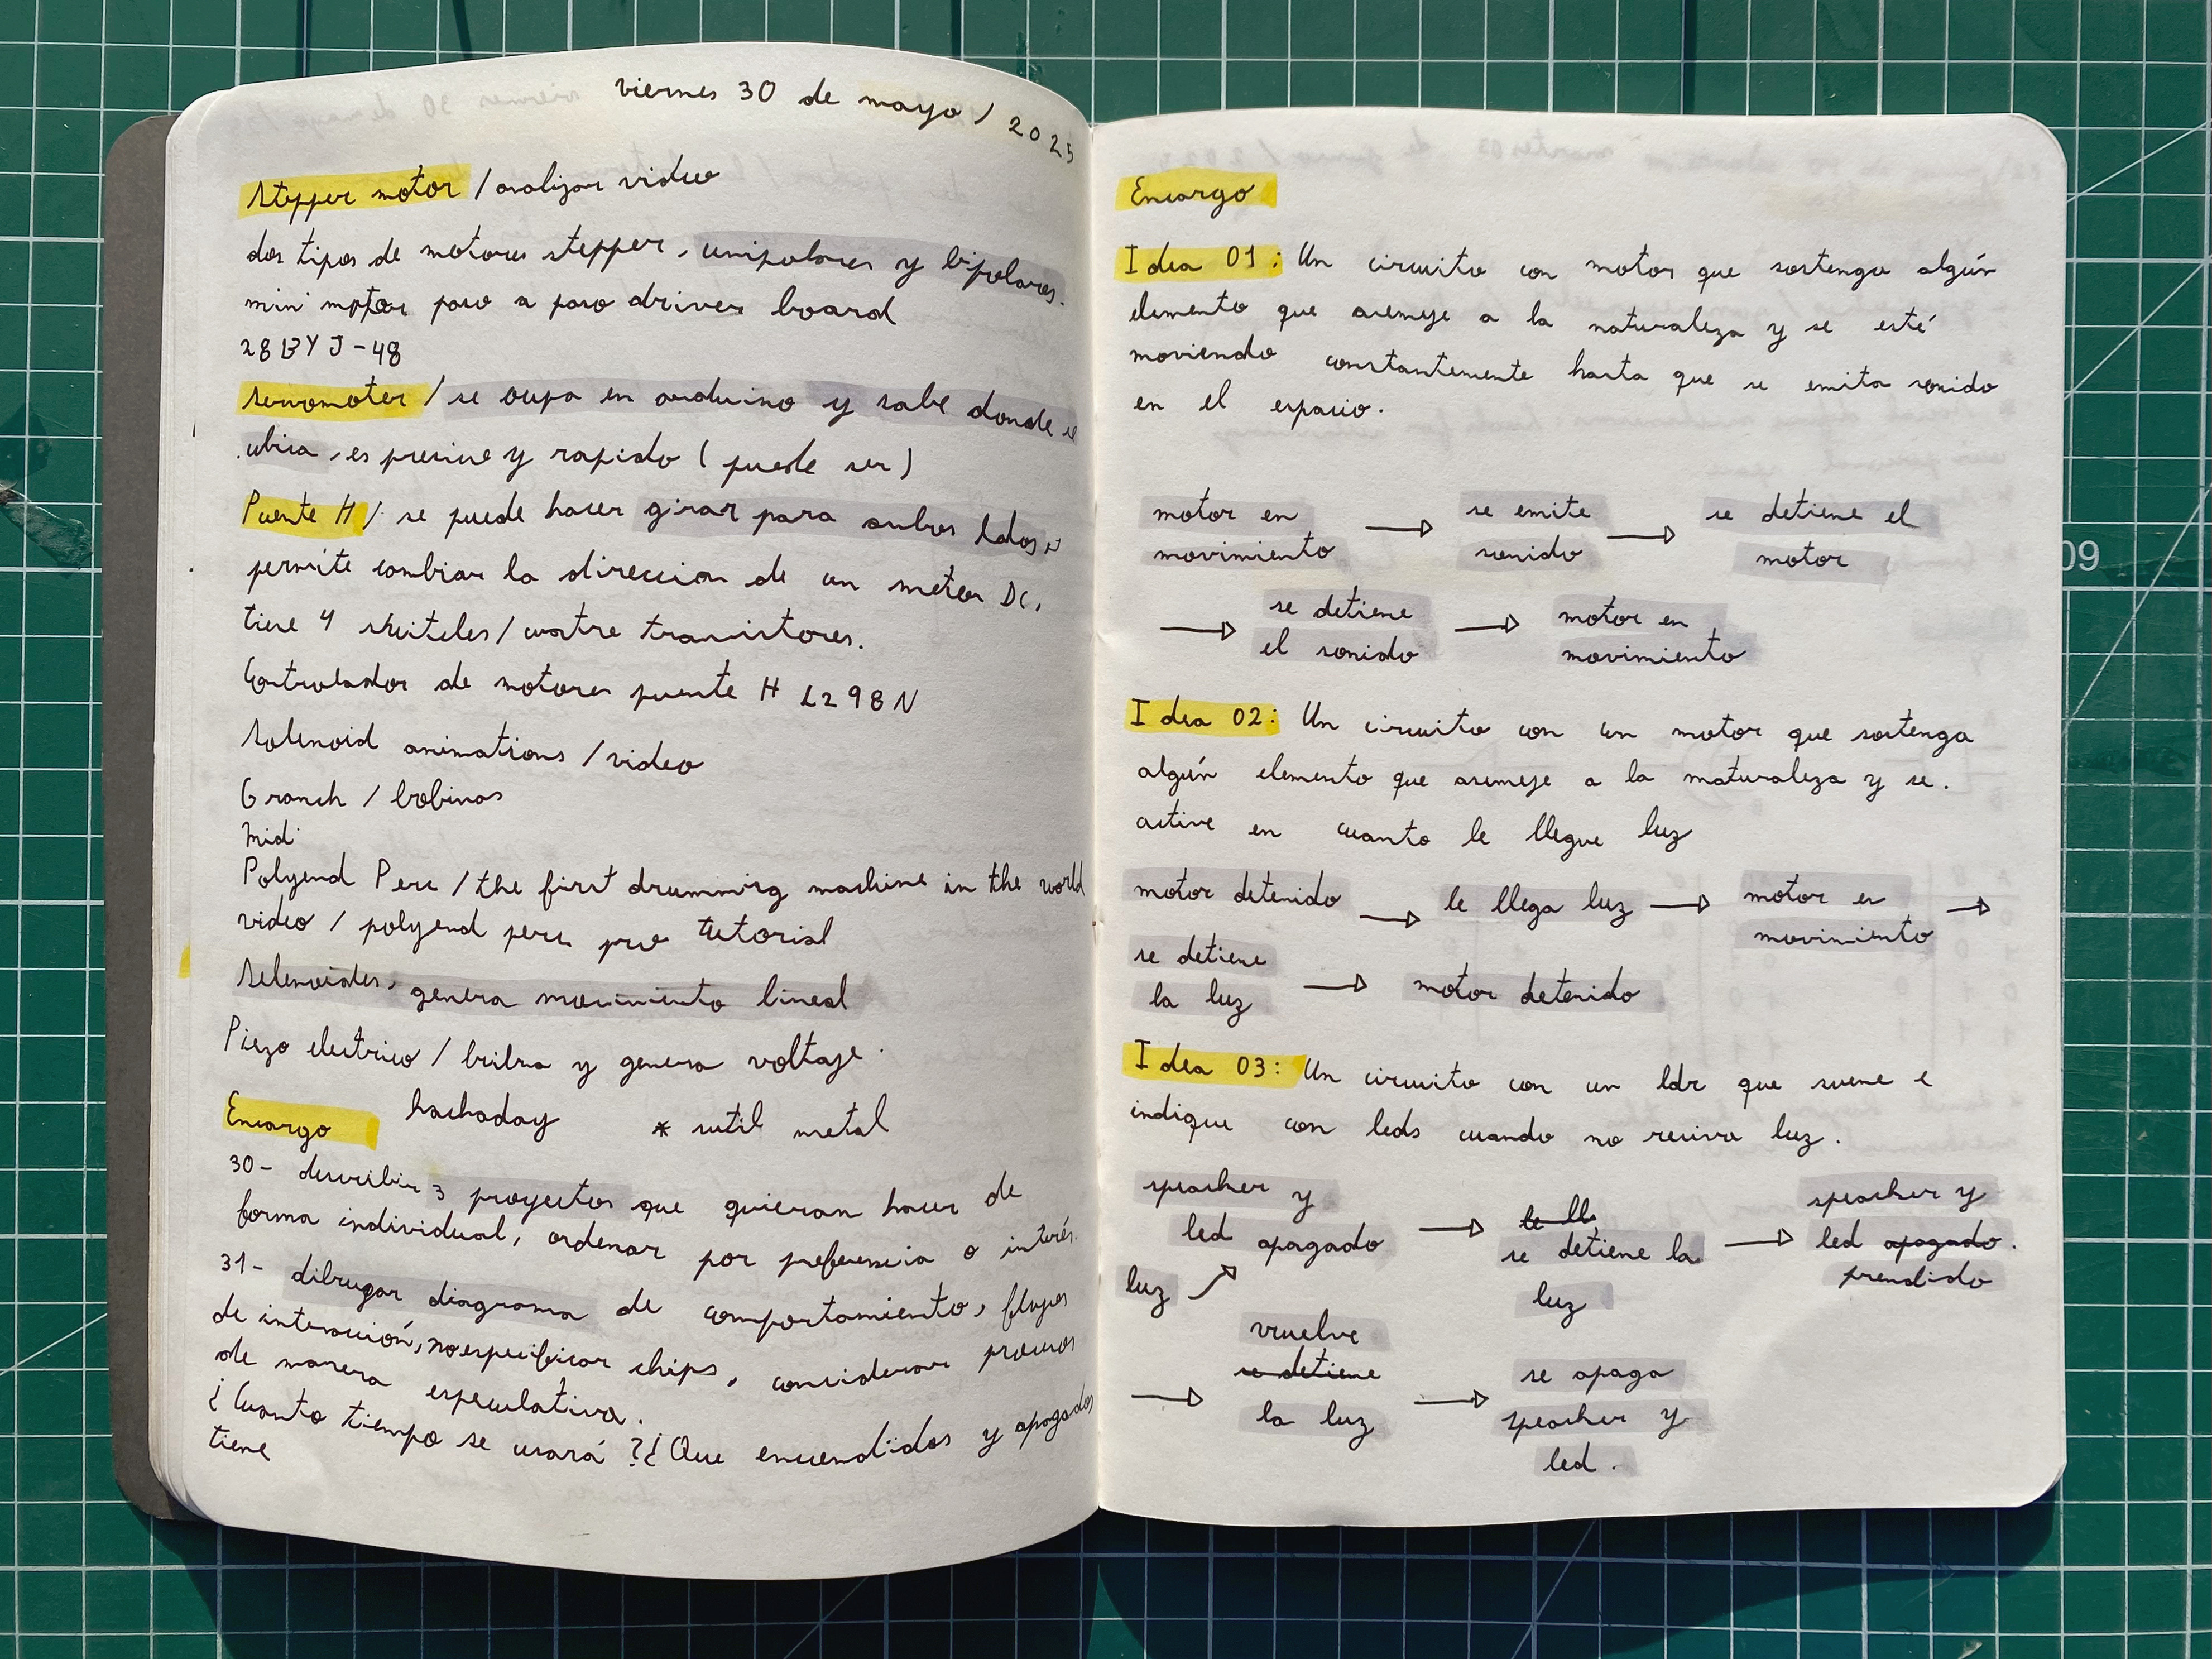 viernes 30 de mayo / 2025
Stepper motor / analizar video
dos tipos de motores stepper, unipolares y bipolares.
mini motor paso a paso driver board
28BYJ-48
Servomotor / se ocupa en arduino y sabe donde se
ubica, es preciso y rapido (puede ser)
Puente H / se puede hacer girar para ambos lados,
permite cambiar la direccion de un motor DC,
tiene 4 / cuatro transistores.
Controlador de motores puente H L298N
Solenoid animations / video
/ bobinas
Midi
Polyend Perc / the first drumming machine in the world
video / polyend perc pro tutorial
Selenoides, genera movimiento lineal
Piezo electrico / bribra y genera voltaje.
Encargo hackaday * sutil metal
30- describir 3 proyectos que quieran hacer de
forma individual, ordenar por preferencia o interés.
31- dibugar diagrama de comportamiento, flujos
de interacción, no especificar chips, considerar procesos
de manera especulativa.
¿Cuanto tiempo se usará? ¿Que encendidos y apagados
tiene
Encargo
Idea 01: Un circuito con motor que sostenga algún
elemento que asemeje a la naturaleza y se esté
moviendo constantemente hasta que se emita sonido
en el espacio.
motor en movimiento → se emite sonido → se detiene el motor
→ se detiene el sonido → motor en movimiento
Idea 02: Un circuito con un motor que sostenga
algún elemento que asemeje a la naturaleza y se.
active en cuanto le llegue luz
motor detenido → le llega luz → motor en movimiento →
se detiene la luz → motor detenido
Idea 03: Un circuito con un ldr que suene e
indique con leds cuando no reciva luz.
speacker y led apagado → le ll se detiene la luz → speacker y led apagado. prendido
luz ↗
→ vuelve se detiene la luz → se apaga speacker y led.
09